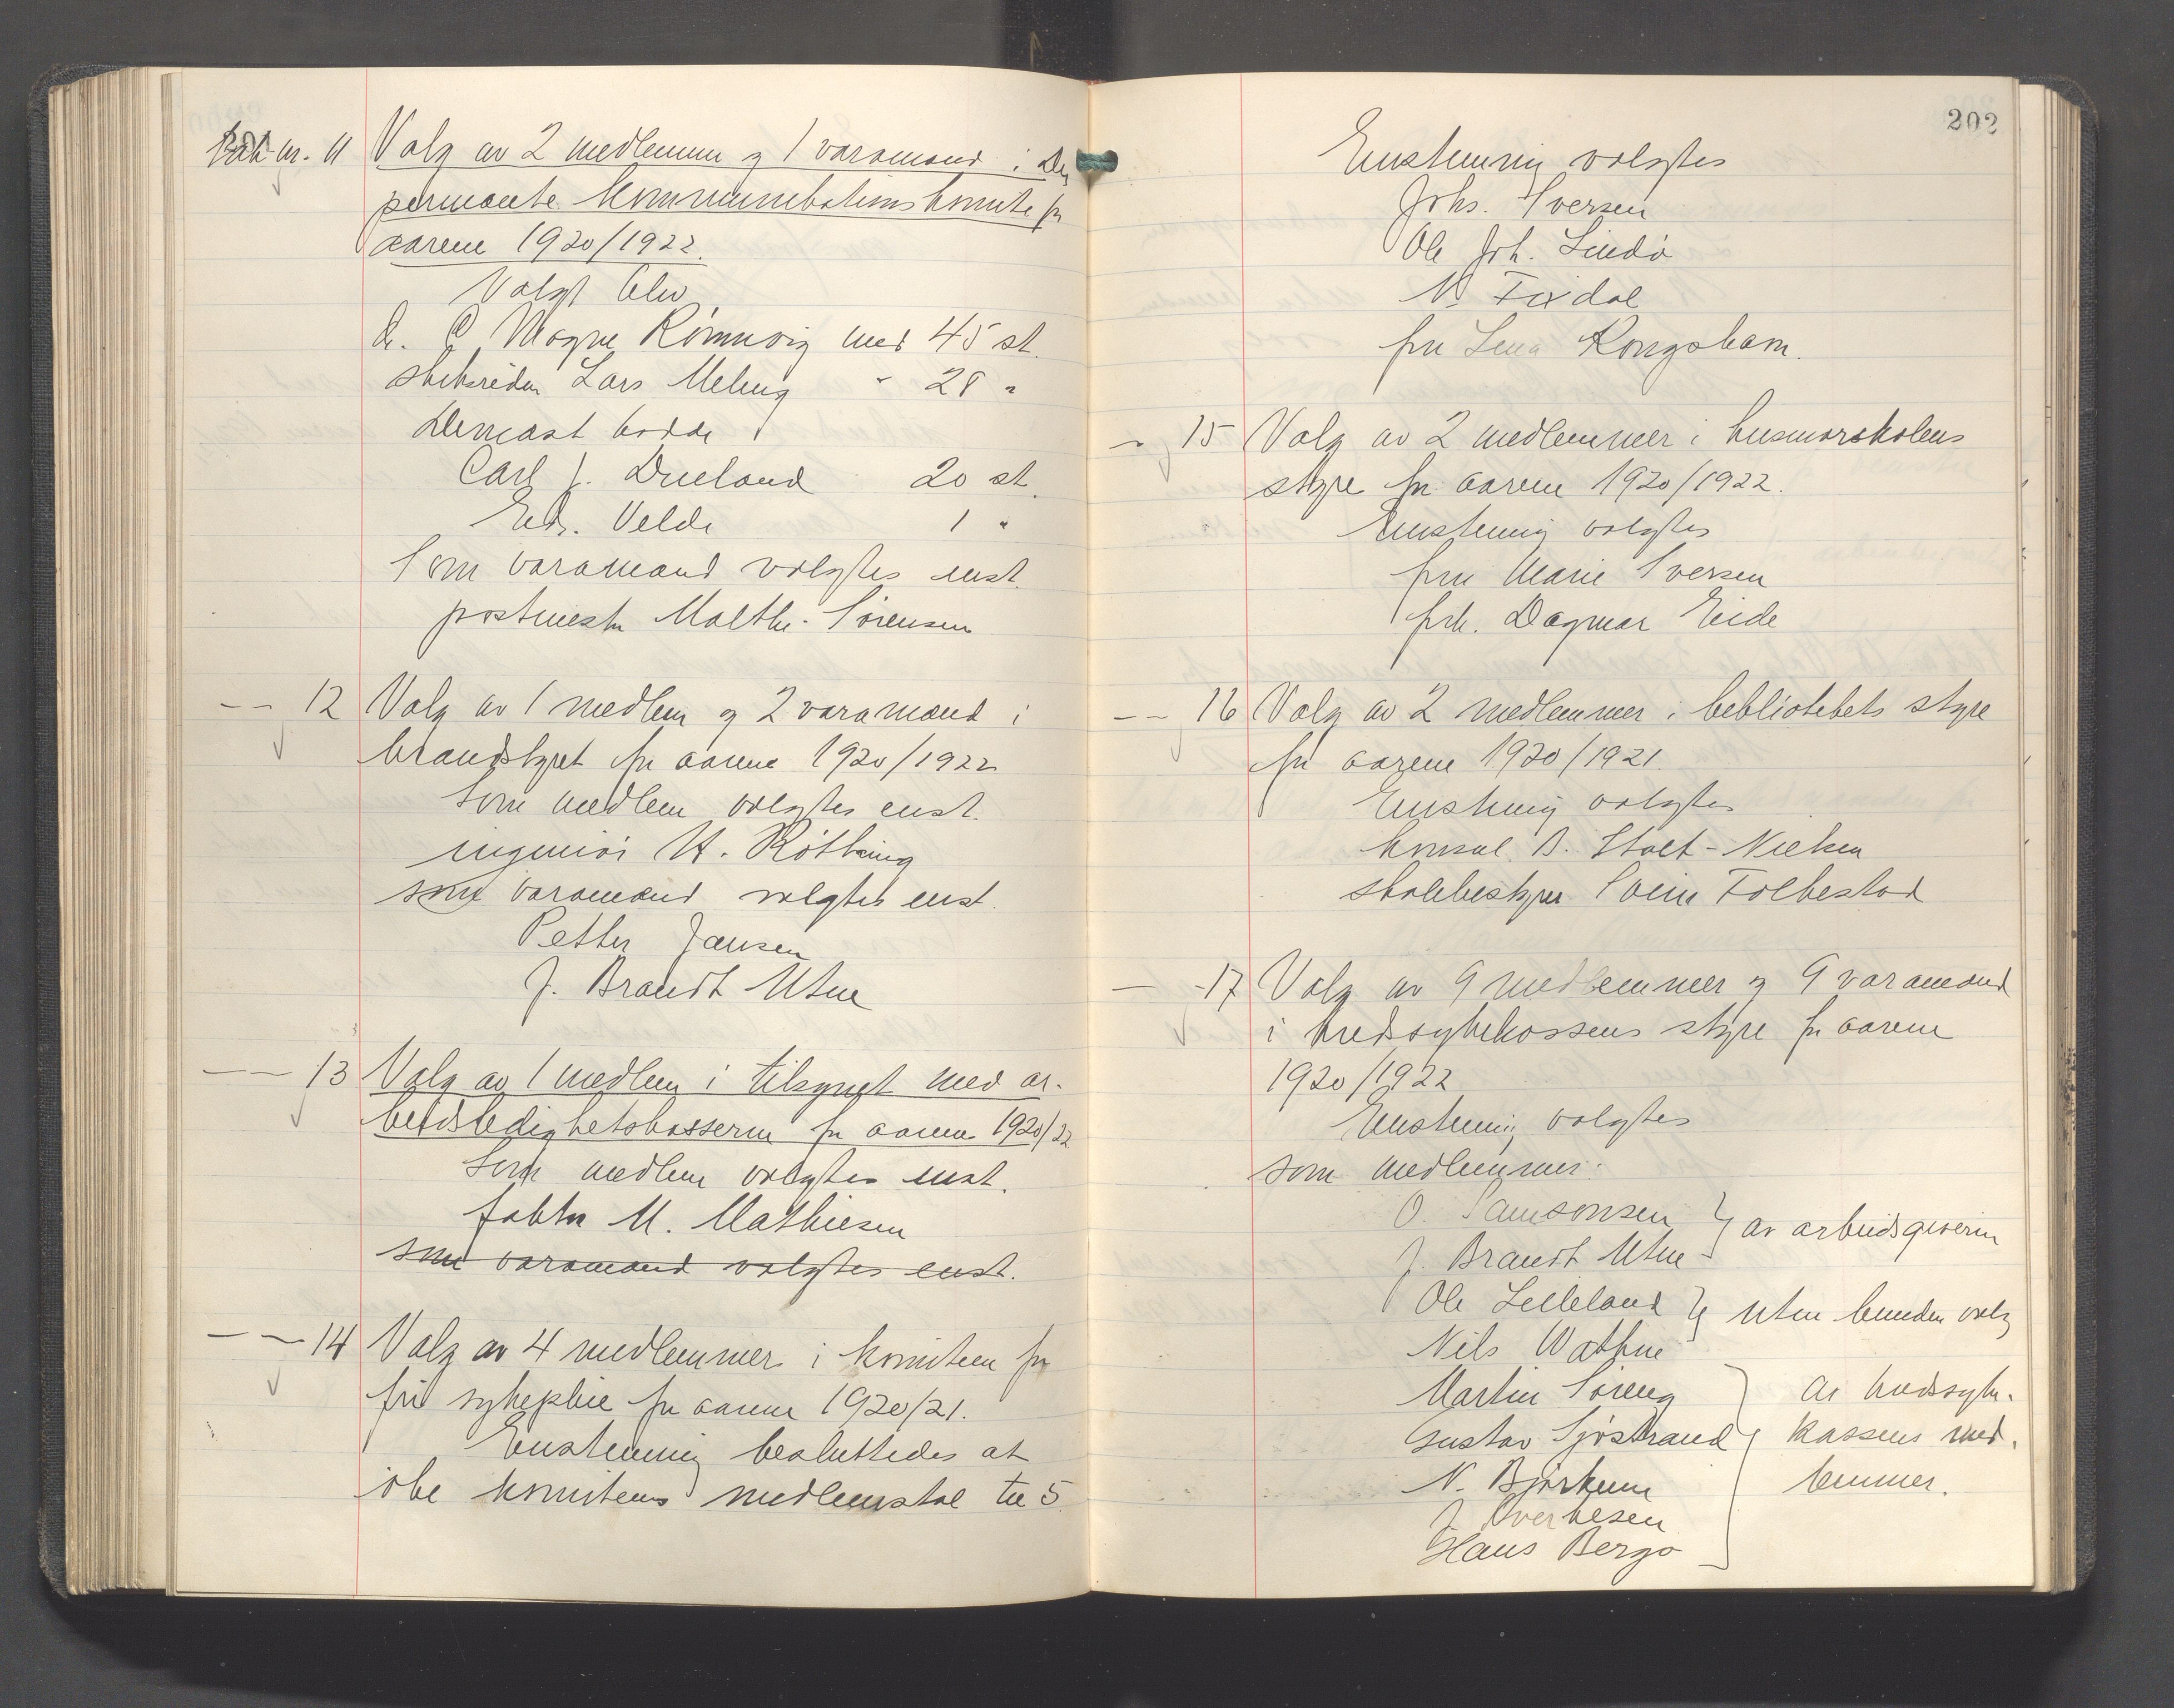 Sak nr. 11 Valg av 2 medlemmer og 1 varamand i den
permante kommunikationskomite for
aarene 1920/1922.
Valgt blev
dr. C. Magne Rönnevig med 45 st.
skibsreder Lars Meling " 28 "
Dernæst hadde
Carl J. Dueland 20 st.
Edv. Velde 1 "
Som varamand valgtes enst.
postmester Malthe-Sörensen
— — 12 Valg av 1 medlem og 2 varamænd i
brandstyret for aarene 1920/1922
Som medlem valgtes enst.
ingeniör H. Röthing
som varamænd valgtes enst.
Petter Jansen
J. Brandt Utne
— — 13 Valg av 1 medlem i tilsynet med ar-
beidsledighetskasserne for aarene 1920/22
Som medlem valgtes enst.
faktor M. Mathiesen
som varamand valgtes enst.
— — 14 Valg av 4 medlemmer i komiteen for
fri sykepleie for aarene 1920/21.
Enstemmig besluttedes at
öke komiteens medlemstal til 5.
202
Enstemmig valgtes
Johs. Iversen
Ole Joh. Lindö
N. Fixdal
fru Lena Kongshavn.
— 15 Valg av 2 medlemmer i husmorskolens
styre for aarene 1920/1922.
Enstemmig valgtes
fru Marie Iversen
frk. Dagmar Eide
— — 16 Valg av 2 medlemmer i bibliotekets styre
for aarene 1920/1921.
Enstemmig valgtes
konsul B. Stolt-Nielsen
skolebestyrer Svein Folkestad
— - 17 Valg av 9 medlemmer og 9 varamænd
i kredssykekassens styre for aarene
1920/1922
Enstemmig valgtes
som medlemmer:
O. Samsonsen } av arbeidsgiverne
J. Brandt Utne
Ole Lilleland } uten bunden valg
Nils Wathne
Martin Soreng } av kredssyke-
Gustav Sjöstrand kassens med-
N. Björkum lemmer.
J. Sverkesen
Hans Bergo